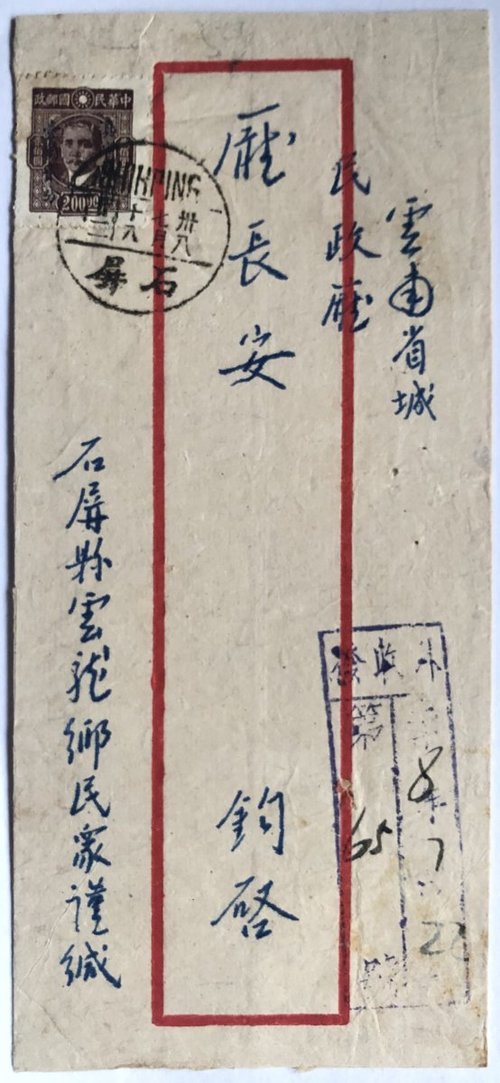 雲南省城
民政廳
廳長安
鈞啓
石屏縣雲龍鄉民衆謹緘
中華民國郵政
200 00
SHIHPING
卅八
七月
十八
石屏
收發
第
65
號
8
年
7
22